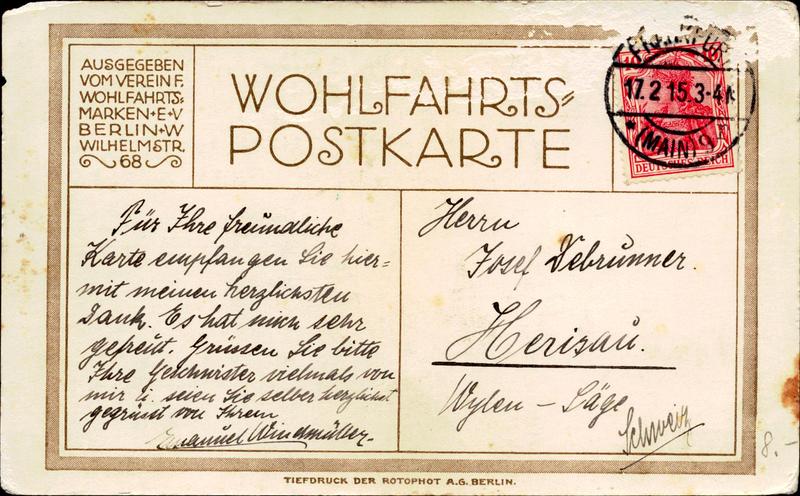 AUSGEGEBEN
VOM VEREIN F.
WOHLFAHRTS-
MARKEN•E•V
BERLIN•W
WILHELMSTR.
68
WOHLFAHRTS=
POSTKARTE
FRANKFURT
17.2 15.3-4N
* (MAIN) 9
DEUTSCHES REICH
Für Ihre freundliche
Karte empfangen Sie hier=
mit meinen herzlichsten
Dank. Es hat mich sehr
gefreut. Grüssen Sie bitte
Ihre Geschwister vielmals von
mir u. seien Sie selber herzlichst
gegrüsst von Ihrem
Emanuel Windmüller.
Herrn
Josef Debrunner.
Herisau.
Wylen – Säge
Schweiz
8.-
TIEFDRUCK DER ROTOPHOT A.G. BERLIN.